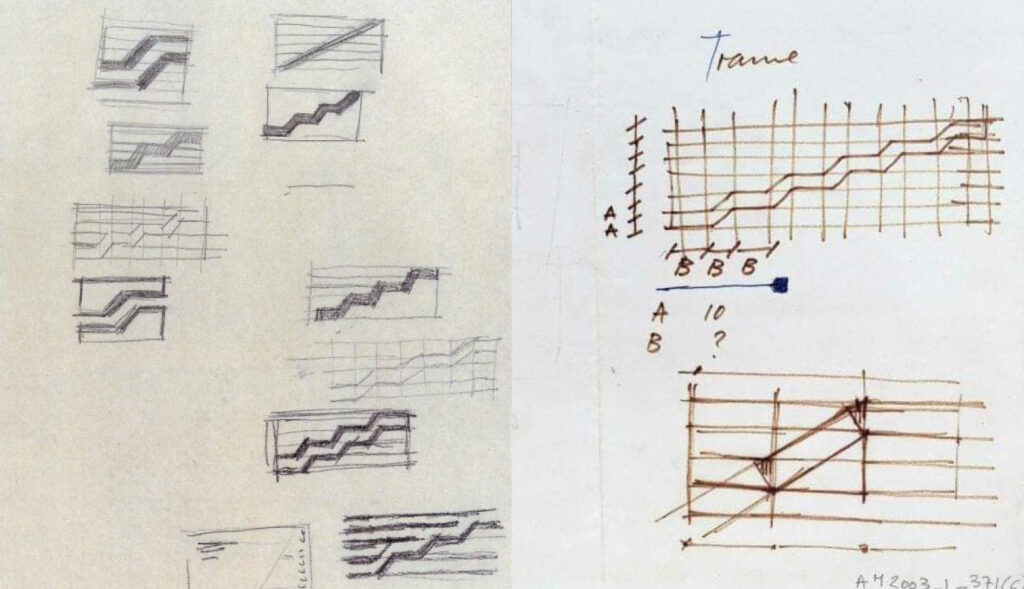 Trame
A
A
B B B
A 10
B ?
AM 2003-1-371(6)